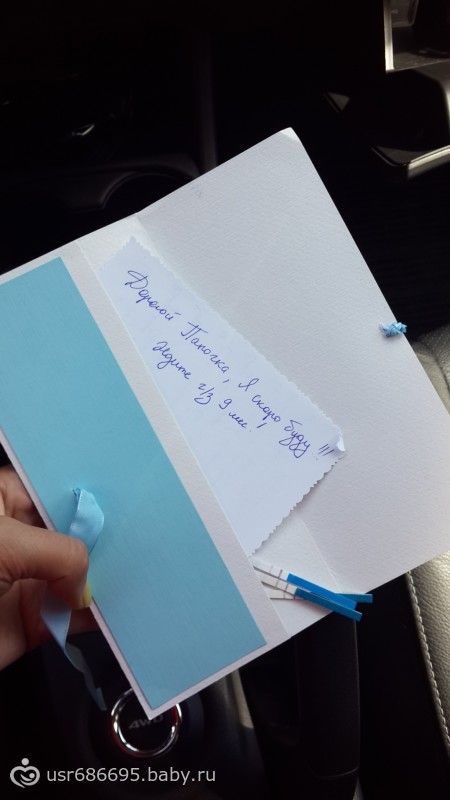 Дорогой Папочка, Я скоро буду!!!
Ждите ч/з 9 мес.!
4WD
usr686695.baby.ru